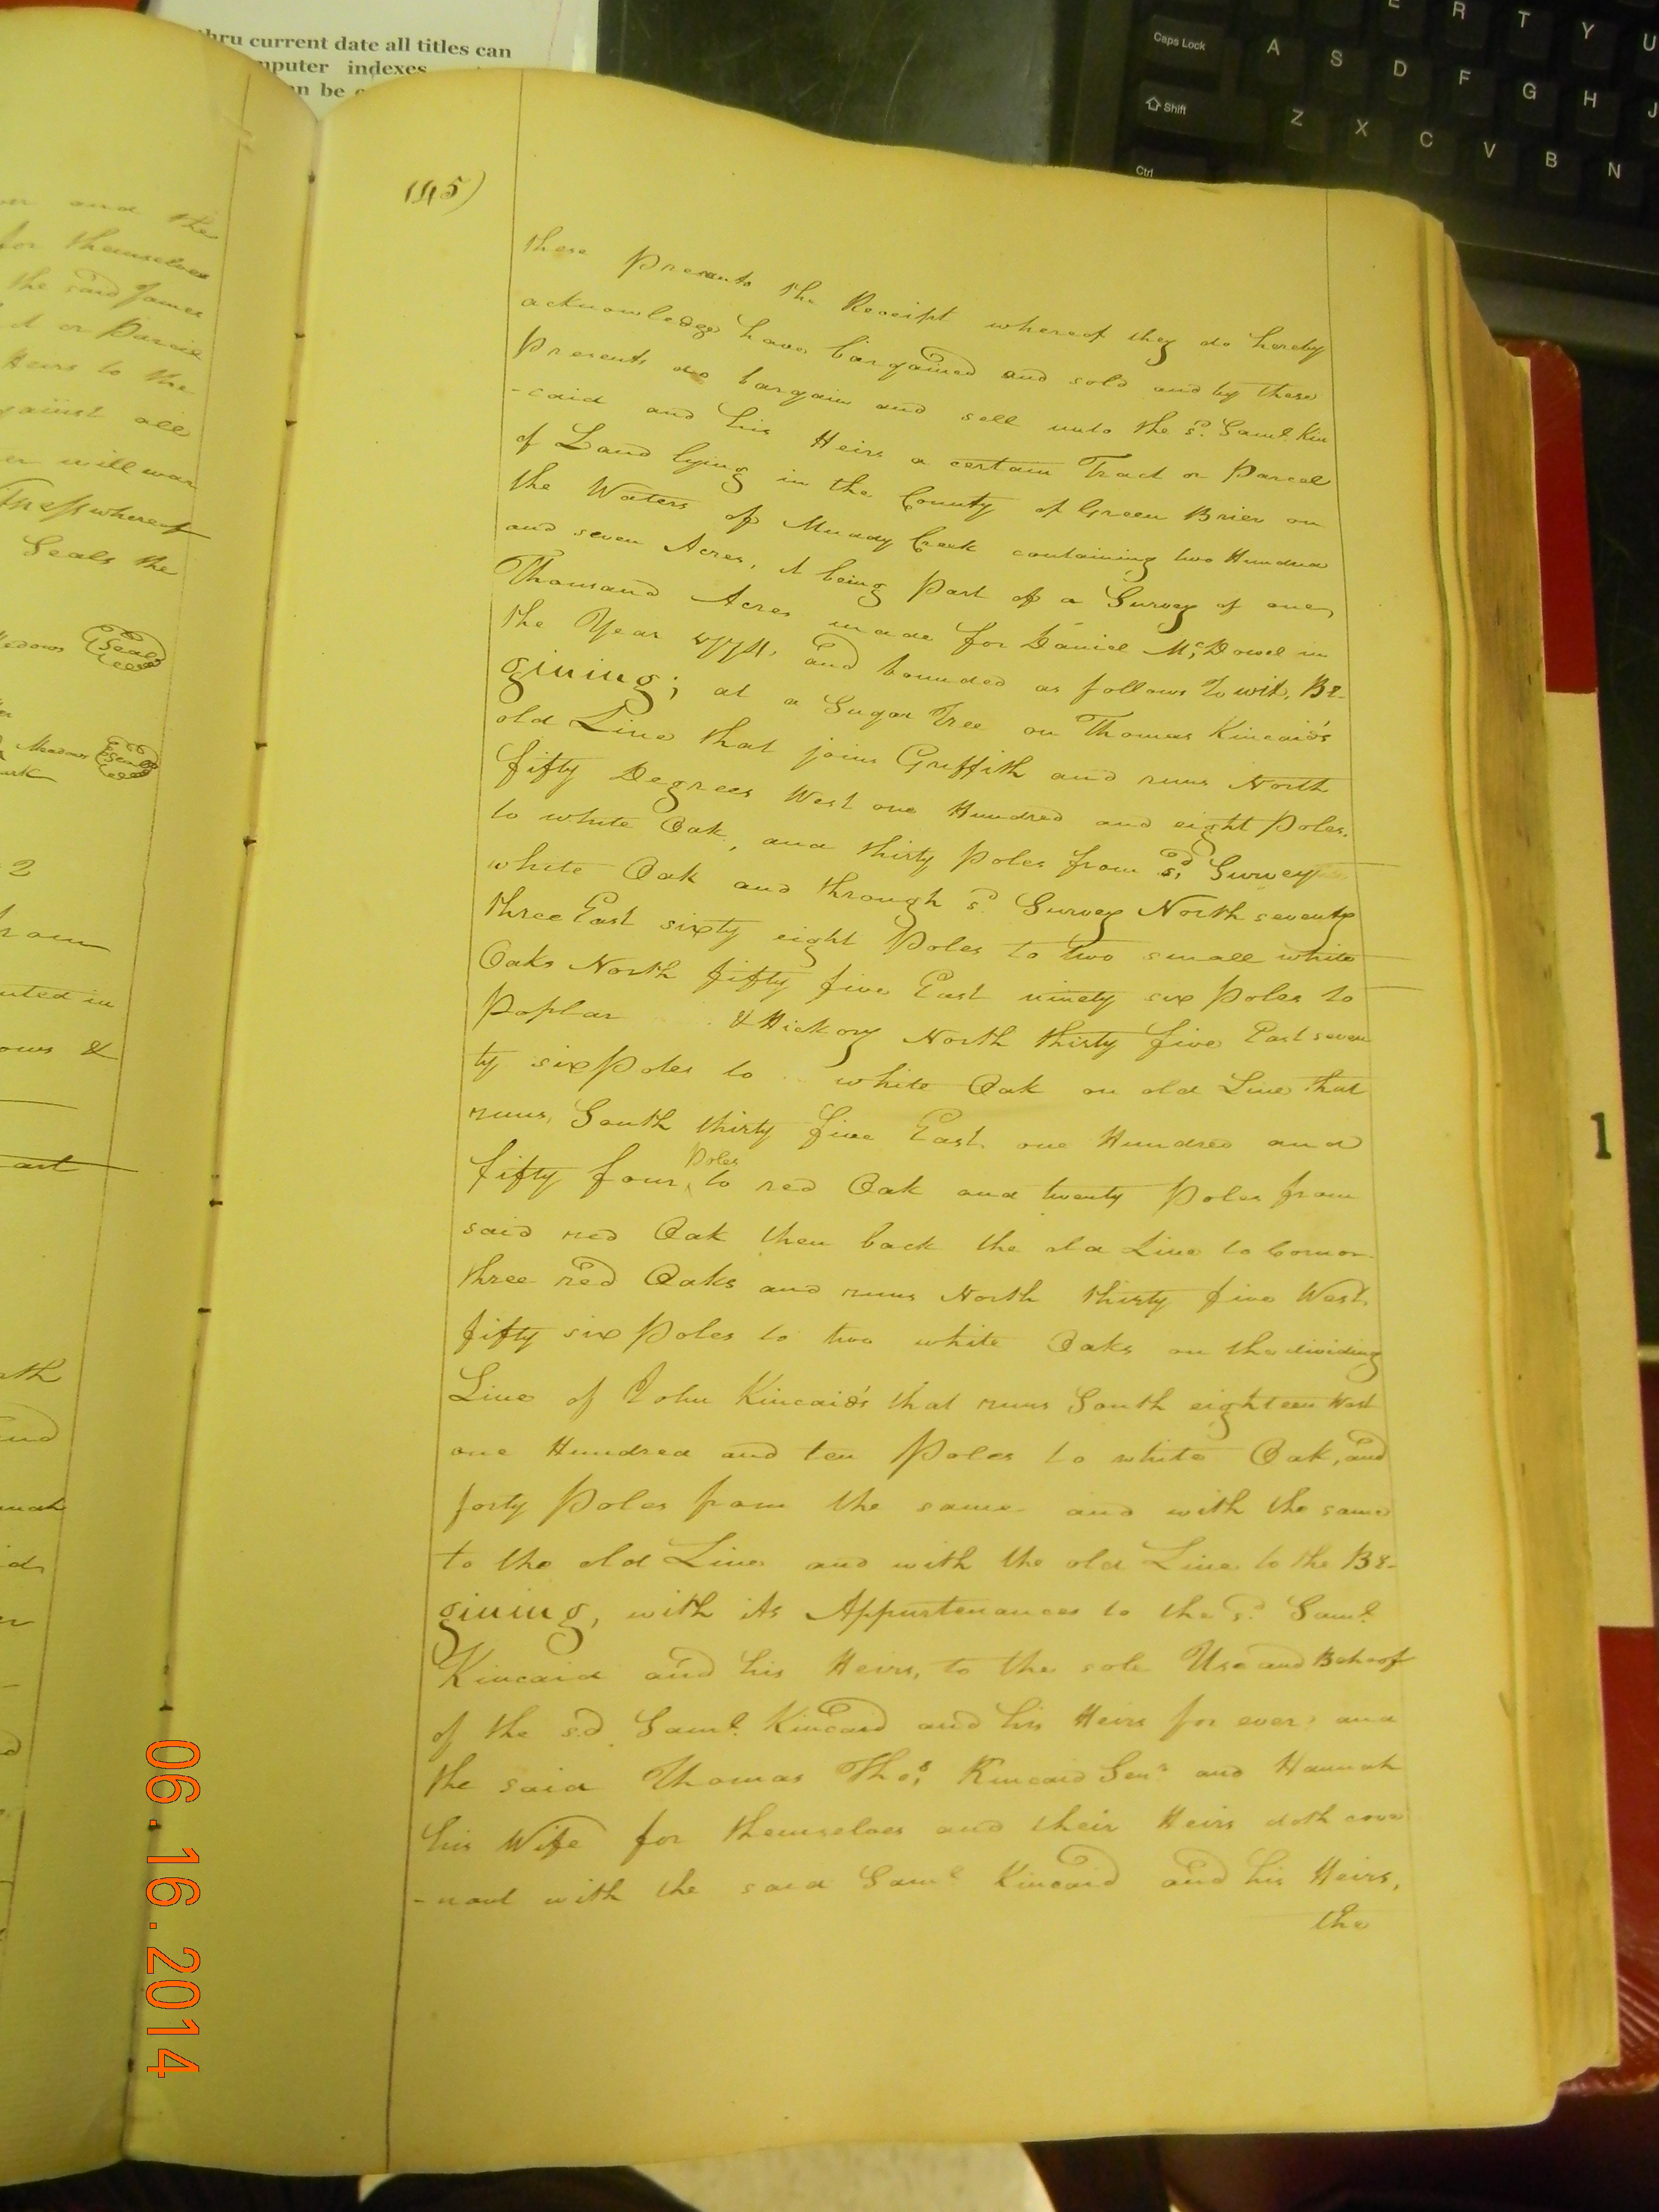 thru current date all titles can
computer indexes
an be
Caps Lock A S D F G H J
E R T Y U
Shift Z X C V B N
Ctrl
and the
for themselves
the said James
or Parcel
Heirs to the
against all
will war
whereof
Seals the
Seal
Meadows Seal
2
(45)
these Presents the Receipt whereof they do hereby
acknowledge have bargained and sold and by these
Presents do bargain and sell unto the sd. Saml. Kin
-caid and his Heirs a certain Tract or Parcel
of Land lying in the County of Green Brier on
the Waters of Muddy Creek containing two Hundred
and seven Acres, it being Part of a Survey of one
Thousand Acres made for Daniel McDowel in
the Year 1774, and bounded as follows To wit, Be-
gining; at a Sugar Tree on Thomas Kincaid's
old Line that joins Griffith and runs North
fifty Degrees West one Hundred and eight Poles.
to white Oak, and thirty Poles from sd. Survey
white Oak and through sd. Survey North seventy
three East sixty eight Poles to two small white
Oaks North fifty five East ninety six Poles to
Poplar & Hickory North thirty five East seven
ty six Poles to white Oak on old Line that
runs, South thirty five East one Hundred and
fifty four Poles to red Oak and twenty Poles from
said red Oak then back the old Line to Cornor
three red Oaks and runs North thirty five West.
fifty six Poles to two white Oaks on the dividing
Line of John Kincaid's that runs South eighteen West
one Hundred and ten Poles to white Oak, and
forty Poles from the same and with the same
to the old Line and with the old Line to the Be-
gining, with its Appurtenances to the sd. Saml.
Kincaid and his Heirs, to the sole Use and Behoof
of the sd. Saml. Kincaid and his Heirs for ever; and
the said Thomas Thos. Kincaid Senr. and Hannah
his Wife for themselves and their Heirs doth cove
-nant with the said Saml. Kincaid and his Heirs,
the
1
06.16.2014